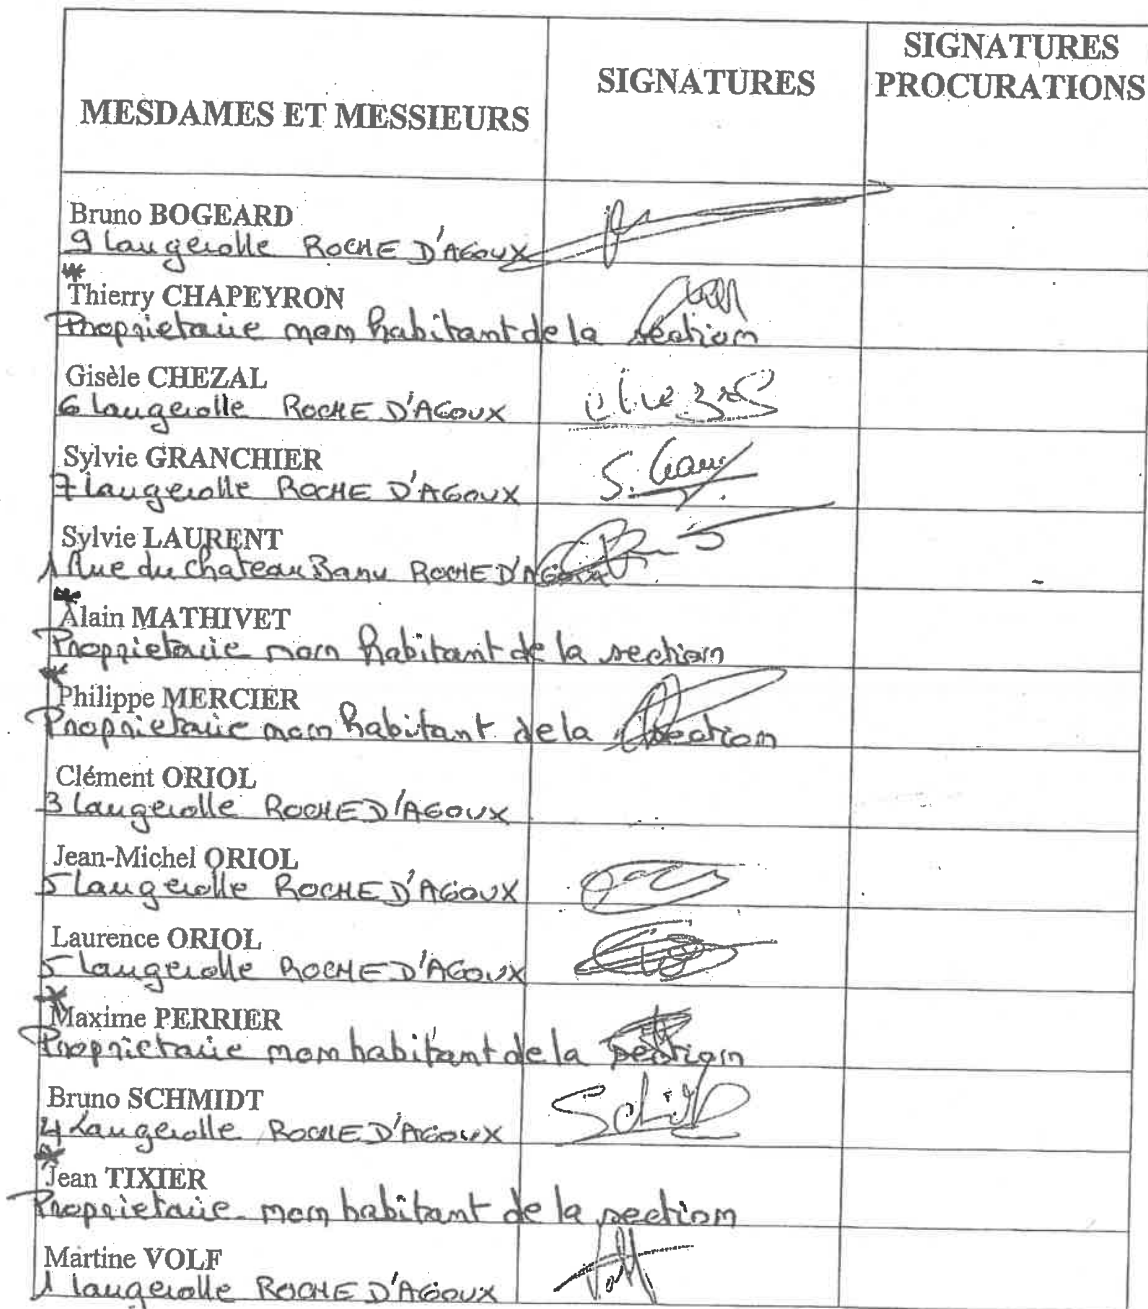 MESDAMES ET MESSIEURS
SIGNATURES
SIGNATURES
PROCURATIONS
Bruno BOGEARD
9 Laugerolle ROCHE D'AGOUX
* Thierry CHAPEYRON
Proprietaire non habitant de la section
Gisèle CHEZAL
6 Laugerolle ROCHE D'AGOUX
Sylvie GRANCHIER
7 Laugerolle ROCHE D'AGOUX
S. Gran
Sylvie LAURENT
1 Rue du Chateau ROCHE D'AGOUX
* Alain MATHIVET
Proprietaire non habitant de la section
* Philippe MERCIER
Proprietaire non habitant de la section
Clément ORIOL
3 Laugerolle ROCHE D'AGOUX
Jean-Michel ORIOL
5 Laugerolle ROCHE D'AGOUX
Laurence ORIOL
5 Laugerolle ROCHE D'AGOUX
* Maxime PERRIER
Proprietaire non habitant de la section
Bruno SCHMIDT
4 Laugerolle ROCHE D'AGOUX
* Jean TIXIER
Proprietaire non habitant de la section
Martine VOLF
1 Laugerolle ROCHE D'AGOUX